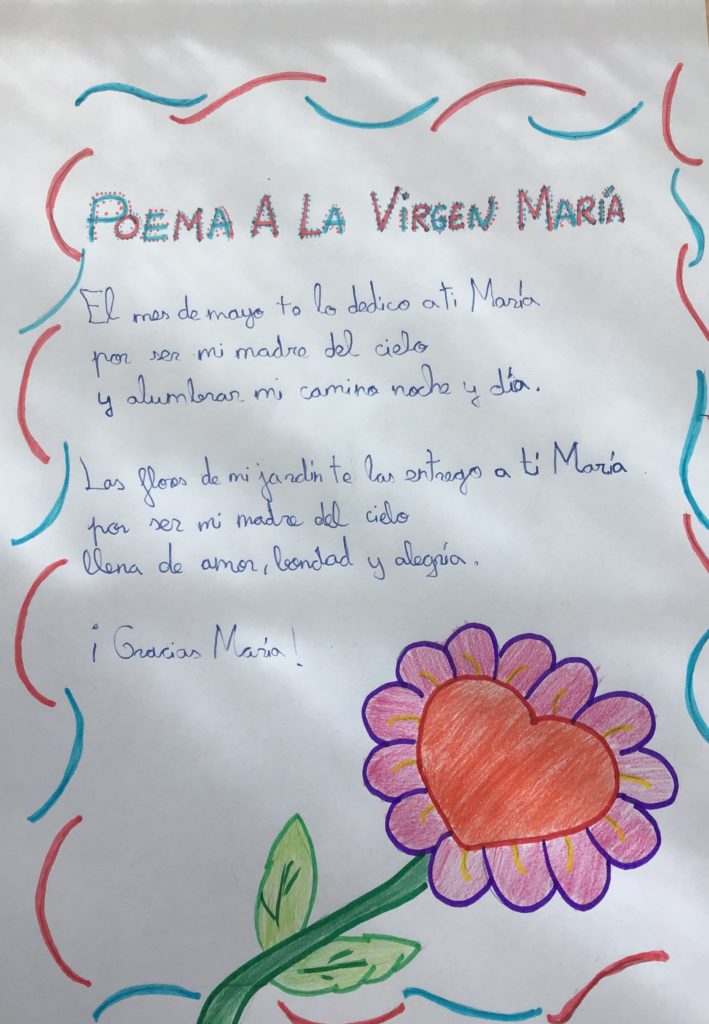 POEMA A LA VIRGEN MARÍA
El mes de mayo te lo dedico a ti María
por ser mi madre del cielo
y alumbrar mi camino noche y día.
Las flores de mi jardín te las entrego a ti María
por ser mi madre del cielo
llena de amor, bondad y alegría.
¡Gracias María!